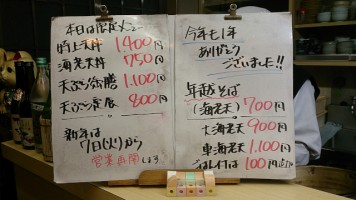 本日は限定メニュー
特上天丼 1400円
海老天丼 750円
天ぷら御膳 1,100円
天ぷら定食 800円
新年は
7日(火)から
営業再開します
今年も1年
ありがとう
ございました!!
年越そば
(海老天) 700円
大海老天 900円
車海老天 1.100円
ごはん付は100円